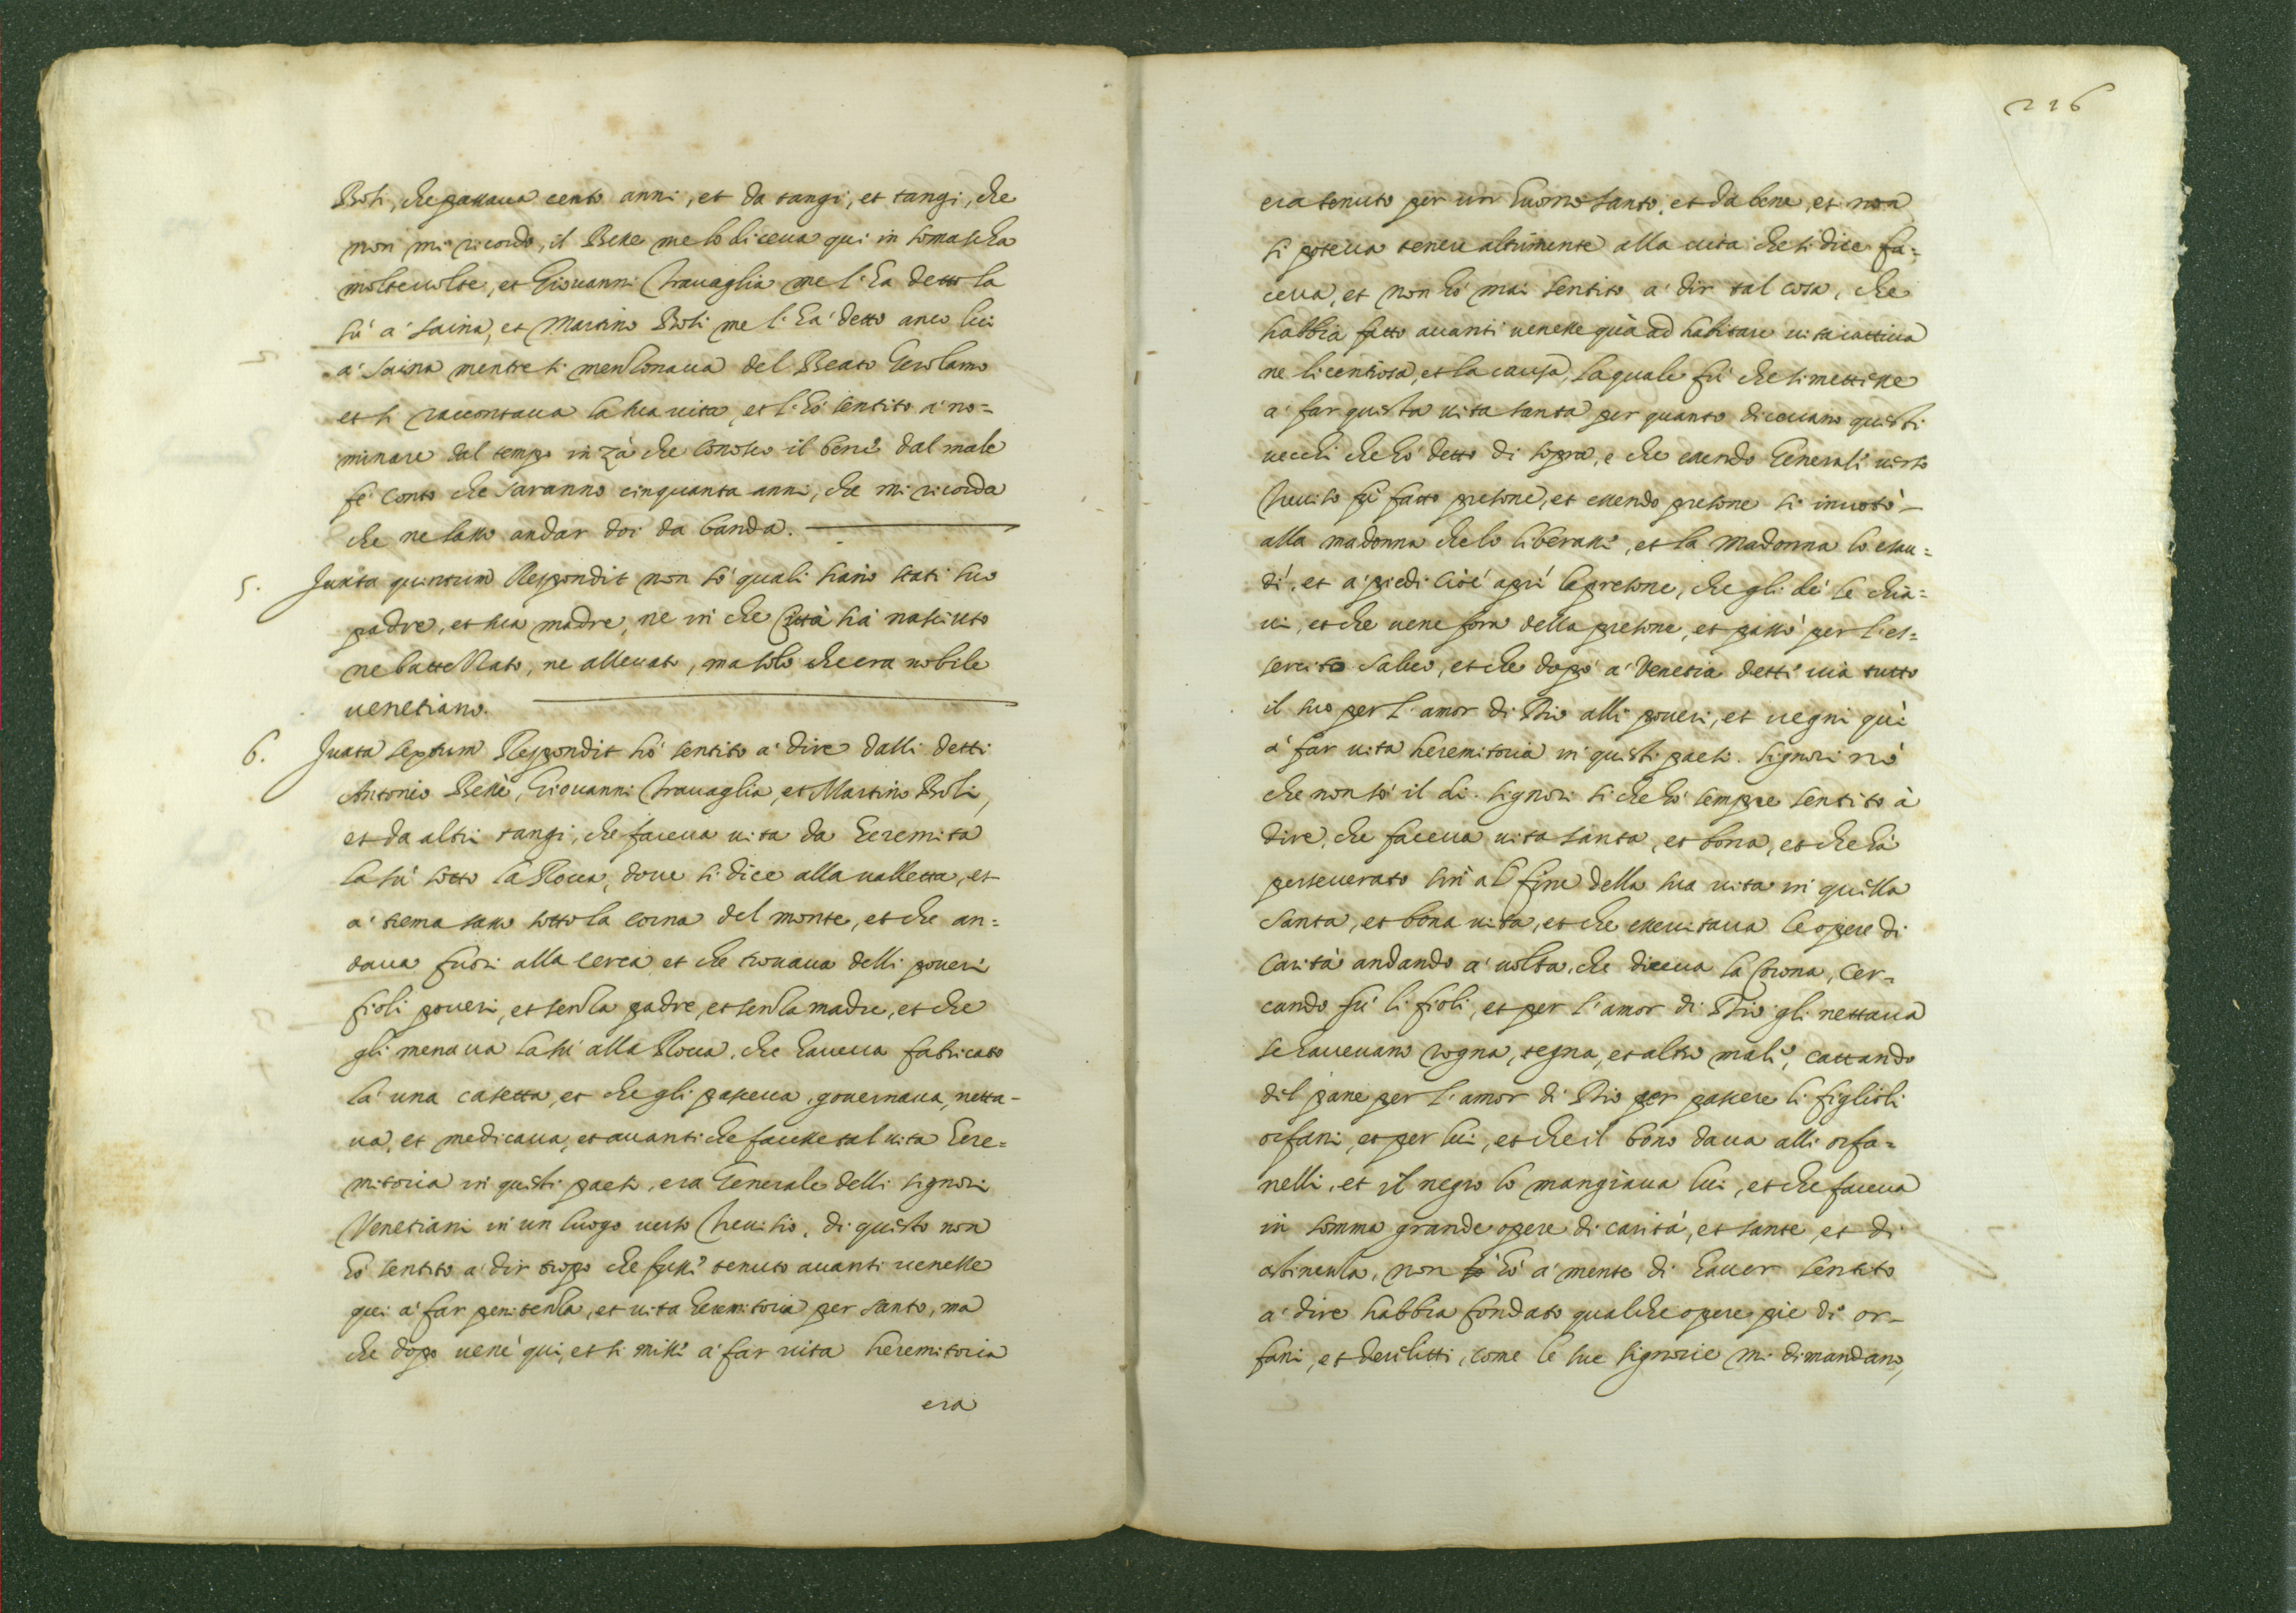 Boli, che passaua cento anni, et da tangi, et tangi, che
non mi ricordo, il Besse me lo diceua qui in somascha
molte uolte, et Giouanni Trauaglia me l'ha detto la
sù a' saina, et Martino Boli me l'ha detto anco lui
a' saina mentre si menzonaua del Beato Gerolamo
et si raccontaua la sua uita, et l'hò sentito a' no=
minare dal tempo in zà che conosco il bene dal male
fò conto che saranno cinquanta anni, che mi ricorda
che ne lasso andar doi da banda.
5. Juxta quintum Respondit non sò quali siano stati suo
padre, et sua madre, ne in che Città sia nasciuto
ne battezzato, ne alleuato, ma solo che era nobile
uenetiano.
6. Juxta sextum Respondit hò sentito a' dire dalli detti
Antonio Besse, Giouanni Trauaglia, et Martino Boli,
et da altri tangi, che faceua uita da heremita
la sù sotto la Rocca, doue si dice alla ualletta, et
a' tremasasso sotto la corna del monte, et che an=
daua fuori alla cerca et che trouaua delli poueri
fioli poueri, et senza padre, et senza madre, et che
gli menaua la sù alla Rocca, che haueua fabricato
là una casetta, et che gli pasceua, gouernaua, netta-
ua, et medicaua, et auanti che facesse tal uita here=
mitoria in questi paesi, era Generale delli signori
Venetiani in un luogo uerso Treuisio, di questo non
hò sentito a' dir tropo che fusse tenuto auanti uenesse
qui a' far penitenza, et uita heremitoria per santo, ma
che dopo uene qui, et si misse a' far uita heremitoria
era
226
era tenuto per un huomo santo, et da bene, et non
si poteua tenere altrimente alla uita che si dice fa=
ceua, et non hò mai sentito a' dir tal cosa, che
habbia fatto auanti uenesse quà ad habitare uita cattiua
ne licentiosa, et la causa, la quale fù che si mettesse
a' far questa uita santa per quanto diceuano questi
uecchi che hò detto di sopra, e che essendo Generali uerso
Treuiso fù fatto presone, et essendo presone si inuotò
alla madonna che lo liberasse, et la Madonna lo esau=
dì, et a' piedi cioè aprì le presone, che gli dè le chia=
ui, et che uene fora della presone, et passò per l'es=
sercito saluo, et che dopò a' Venetia dette uia tutto
il suo per l'amor di Dio alli poueri, et uegni quì
a' far uita heremitoria in questi paesi. Signori nò
che non sò il dì. signori si che hò sempre sentito à
dire, che faceua uita santa, et bona, et che hà
perseuerato sin al fine della sua uita in quella
santa, et bona uita, et che essercitaua le opere di
Carità andando a' uolta, che diceua la Corona, cer-
cando sù li fioli, et per l'amor di Dio gli nettaua
se haueuano rogna, tegna, et altro male, cattando
del pane per l'amor di Dio per pascere li figlioli
orfani, et per lui, et che il bono daua alli orfa=
nelli, et il negro lo mangiaua lui, et che faceua
in somma grande opere di carità, et sante, et di
astinenza, non hò a' mente di hauer sentito
a' dire habbia fondato qualche opere pie di or-
fani, et derelitti, come le sue signorie mi dimandano,